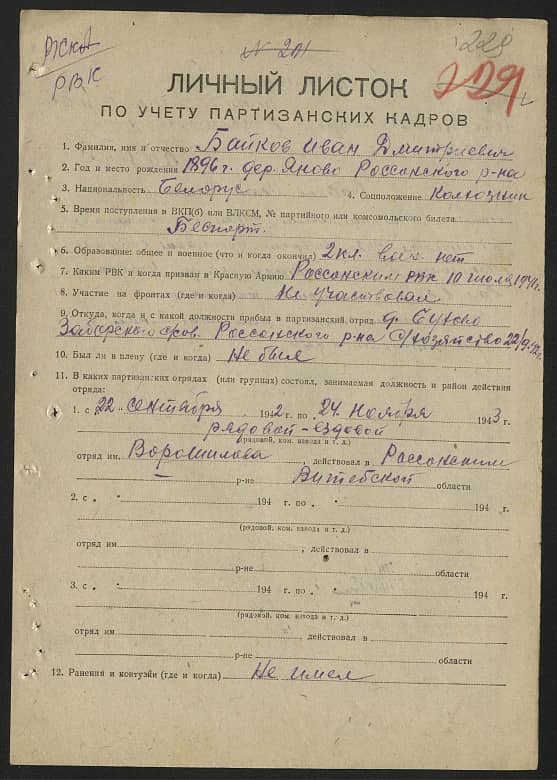 РККА
РВК
№ 201
229
229
ЛИЧНЫЙ ЛИСТОК
ПО УЧЕТУ ПАРТИЗАНСКИХ КАДРОВ
1. Фамилия, имя и отчество Байков Иван Дмитриевич
2. Год и место рождения 1896 г. дер. Яново Россонского р-на
3. Национальность Белорус 4. Соцположение Колхозник
5. Время поступления в ВКП(б) или ВЛКСМ, № партийного или комсомольского билета
Беспарт.
6. Образование: общее и военное (что и когда окончил) 2 кл. воен. нет
7. Каким РВК и когда призван в Красную Армию Россонским РВК 10 июля 1941г.
8. Участие на фронтах (где и когда) Не участвовал
9. Откуда, когда и с какой должности прибыл в партизанский отряд д.
Россонского р-на С/хозяйство 22/9.42г.
10. Был ли в плену (где и когда) Не был
11. В каких партизанских отрядах (или группах) состоял, занимаемая должность и район действия
отряда:
1. с „22“ сентября 1942 г. по „24“ Ноября 1943 г.
рядовой - ездовой
(рядовой, ком. взвода и т. д.)
отряд им. Ворошилова, действовал в Россонским
— р-не Витебской области
2. с „ “ 194 г. по „ “ 194 г.
(рядовой, ком. взвода и т. д.)
отряд им. , действовал в
р-не области
3. с „ “ 194 г. по „ “ 194 г.
(рядовой, ком. взвода и т. д.)
отряд им. , действовал в
р-не области
12. Ранения и контузии (где и когда) Не имел